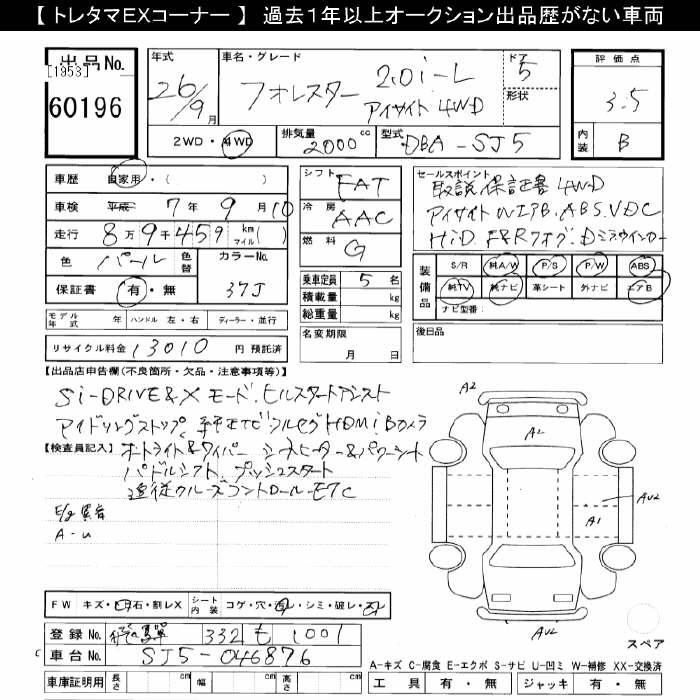 【 トレタマEXコーナー 】 過去1年以上オークション出品歴がない車両
出品No.
[1953]
60196
年式
26/9月
車名・グレード
フォレスター 2.0i-L
アイサイト 4WD
ドア
5
形状
評価点
3.5
内装
B
2WD・4WD
排気量
2000cc
型式
DBA-SJ5
車歴 自家用・( )
車検 平成 7年 9月 10
走行 8万9千459 km マイル( )
色 パール 色替
カラーNo.
37J
保証書 有・無
モデル年式 年 ハンドル 左・右 ディーラー・並行
リサイクル料金 13010 円 預託済
シフト FAT
冷房 AAC
燃料 G
乗車定員 5 名
積載量 kg
総重量 kg
名変期限
月 日
セールスポイント
取説 保証書 4WD
アイサイト WエアB.ABS.VDC
HiD F&Rフォグ.Dミラウインカー
装備品
S/R 純A/W P/S P/W ABS
純TV 純ナビ 革シート 外ナビ エアB
ナビ型番:
後日品
【出品店申告欄(不良箇所・欠品・注意事項等)】
Si-DRIVE&Xモード.ヒルスタートアシスト
アイドリングストップ. 純正ナビ フルセグ HDMi Bカメラ
【検査員記入】 オートライト&ワイパー シートヒーター&パワーシート
パドルシフト. プッシュスタート
追従クルーズコントロール. ETC
E/g 異音
A-U
FW キズ・凹石・割レX シート内装 コゲ・穴・汚・シミ・破レ・スレ
登録No. 332 も 1001
車台No. SJ5-046876
車庫証明用 長さ cm 幅 cm 高さ cm
A2
A2
AU2
A1
AU2
スペア
A-キズ C-腐食 E-エクボ S-サビ U-凹ミ W-補修 XX-交換済
工具 有・無 ジャッキ 有・無